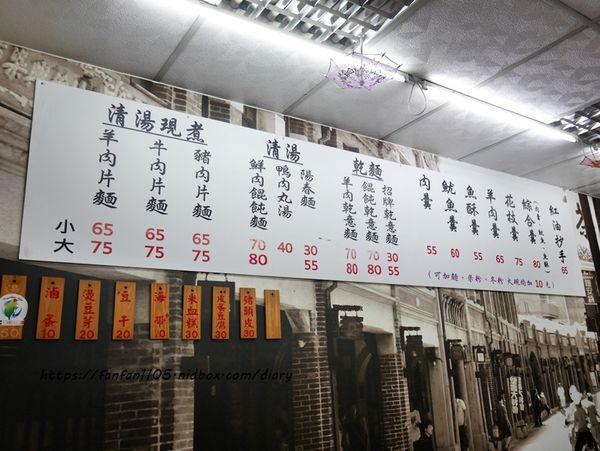 清湯現煮
羊肉片麵
牛肉片麵
豬肉片麵
小 65 65 65
大 75 75 75
清湯
鮮肉餛飩麵 70 80
鴨肉丸湯 40
陽春麵 30 55
乾麵
羊肉乾意麵 70 80
餛飩乾意麵 70 80
招牌乾意麵 30 55
肉羹 55
魷魚羹 60
魚酥羹 55
羊肉羹 65
花枝羹 75
綜合羹 80
紅油抄手 65
(可加麵、米粉、冬粉 大碗均加10元)
滷蛋 10
燙豆芽 20
豆干 20
海帶 10
米血糕 30
皮蛋豆腐 30
豬頭皮 30
https://fanfan1105.nidbox.com/diary